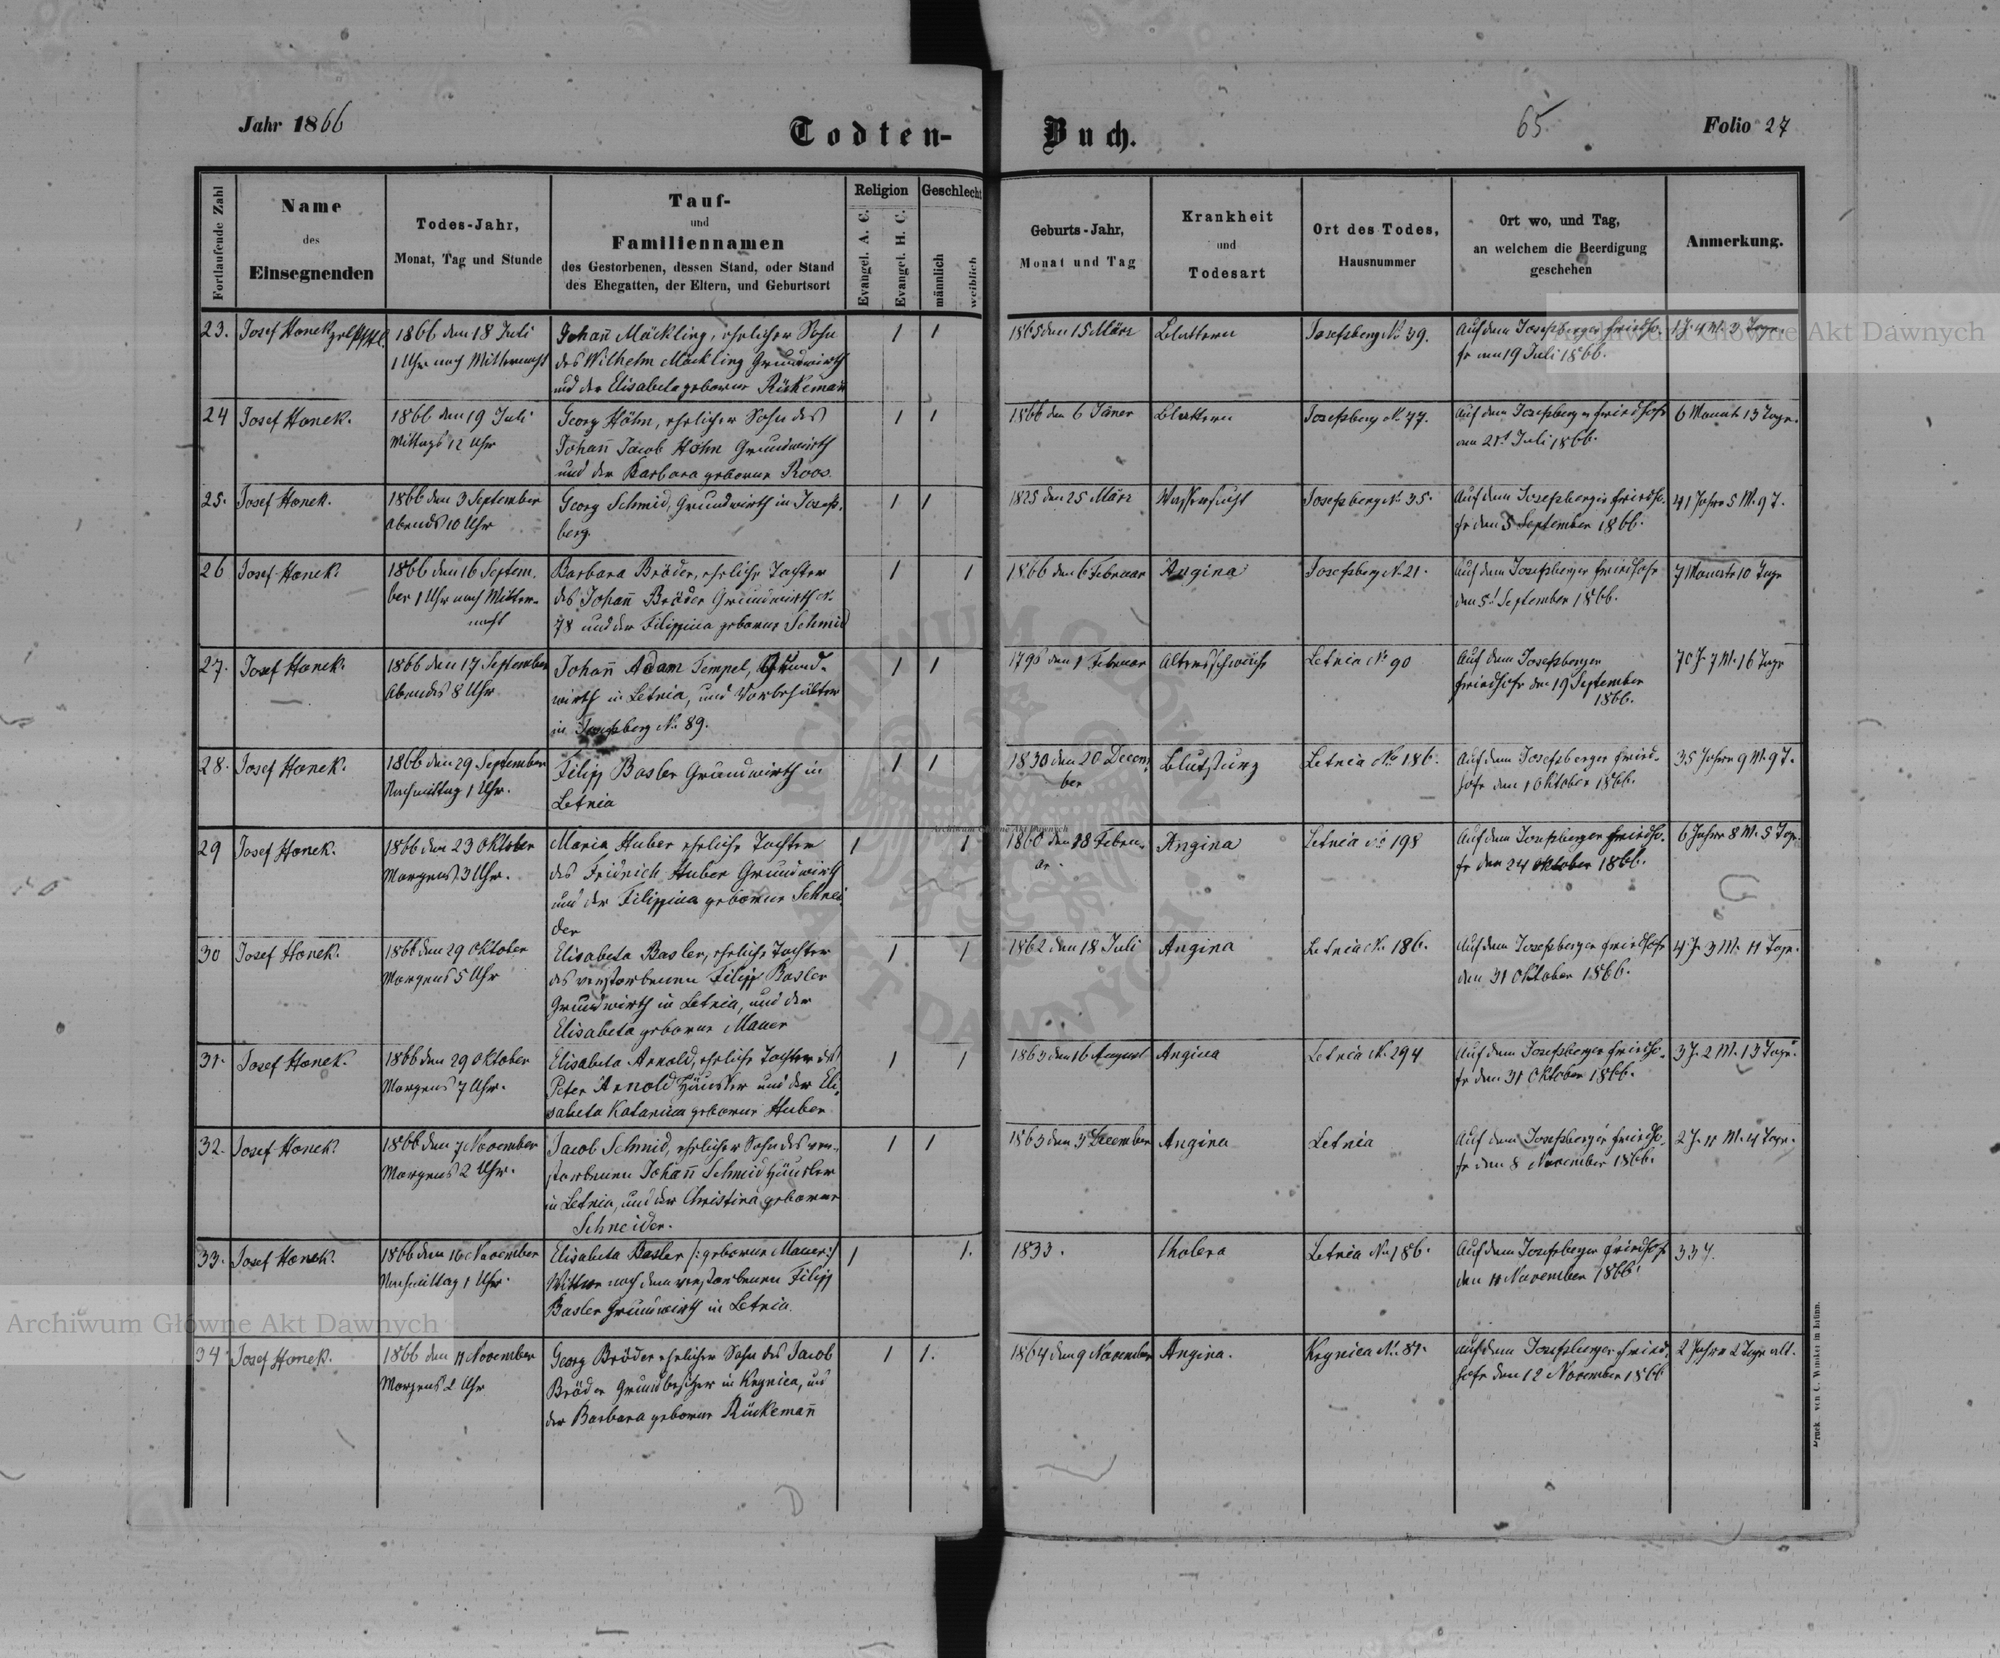 Jahr 1866
Todten-Buch.
65.
Folio 27
Fortlaufende Zahl
Name
des
Einsegnenden
Todes-Jahr,
Monat, Tag und Stunde
Tauf-
und
Familiennamen
des Gestorbenen, dessen Stand, oder Stand
des Ehegatten, der Eltern, und Geburtsort
Religion
Evangel. A. C.
Evangel. H. C.
Geschlecht
männlich
weiblich
Geburts-Jahr,
Monat und Tag
Krankheit
und
Todesart
Ort des Todes,
Hausnummer
Ort wo, und Tag,
an welchem die Beerdigung
geschehen
Anmerkung.
23.
Josef Hanek
1866 den 18 Juli
1 Uhr nach Mitternacht
Johan̄ Mäckling, ehelicher Sohn
des Wilhelm Mäckling Grundwirth
und der Elisabeta geborne Rückeman̄
1 1
1865 den 15 März
Blattern
Josefsberg No 39.
Auf dem Josefsberger Friedho-
fe am 19 Juli 1866.
1 J. 4 M. 3 Tage.
24
Josef Hanek.
1866 den 19 Juli
Mittags 12 Uhr
Georg Höhn, ehelicher Sohn des
Johan̄ Jacob Höhn Grundwirth
und der Barbara geborne Roos.
1 1
1866 den 6 Jäner
Blattern
Josefsberg No 77.
Auf dem Josefsberger Friedhofe
am 21t Juli 1866.
6 Monat 13 Tage.
25.
Josef Hanek.
1866 den 3 September
Abends 10 Uhr
Georg Schmid, Grundwirth in Josefs-
berg.
1 1
1825 den 25 März
Wassersucht
Josefsberg No 35.
Auf dem Josefsberger Friedho-
fe den 5 September 1866.
41 Jahre 5 M. 9 T.
26
Josef Hanek.
1866 den 16 Septem.
ber 1 Uhr nach Mitter-
nacht
Barbara Bröder, eheliche Tochter
des Johan̄ Bröder Grundwirth N.
78 und der Filippina geborne Schmid
1 1
1866 den 6 Februar
Angina
Josefsberg No 21.
Auf dem Josefsberger Friedhofe
September 1866.
7 Monate 10 Tage
27.
Josef Hanek.
1866 den 17 September
Abends 8 Uhr
Johan̄ Adam Tempel, Grund-
wirth in Letnia, und Vorbehälter
in Josefsberg No 89.
1 1
den 1 Februar
Altersschwäche
Letnia No 90
Auf dem Josefsberger
Friedhofe den 19 September
1866.
70 J. 7 M. 16 Tage
28.
Josef Hanek.
1866 den 29 September
Nachmittag 1 Uhr.
Filipp Basler Grundwirth in
Letnia
1 1
1830 den 20 Decem
ber
Blutsturz
Letnia No 186.
Auf dem Josefsberger Fried-
hofe den 1 Oktober 1866.
35 Jahre 9 M. 9 T.
29
Josef Hanek.
1866 den 23 Oktober
Morgens 3 Uhr.
Maria Huber eheliche Tochter
des Fridrich Huber Grundwirth
und der Filippina geborne Schnei-
der
1 1
1860 den 18 Febru-
ar.
Angina
Letnia No 198
Auf dem Josefsberger Friedho-
fe den 24 Oktober 1866.
6 Jahre 8 M. 5 Tage.
30
Josef Hanek.
1866 den 29 Oktober
Morgens 5 Uhr
Elisabeta Basler, eheliche Tochter
des verstorbenen Filipp Basler
Grundwirth in Letnia, und der
Elisabeta geborne Mauer
1 1
1862 den 18 Juli
Angina
Letnia No 186.
Auf dem Josefsberger Friedhofe
den 31 Oktober 1866.
4 J. 3 M. 11 Tage.
31.
Josef Hanek.
1866 den 29 Oktober
Morgens 7 Uhr.
Elisabeta Arnold, eheliche Tochter des
Peter Arnold Häusler und der Eli-
sabeta Katarina geborne Huber
1 1
1863 den 16 August
Angina
Letnia No 294
Auf dem Josefsberger Friedho-
fe den 31 Oktober 1866.
3 J. 2 M. 13 Tage.
32.
Josef Hanek.
1866 den 7 November
Morgens 2 Uhr.
Jacob Schmid, ehelicher Sohn des ver-
storbenen Johan̄ Schmid Häusler
in Letnia, und der Christina geborne
Schneider.
1 1
1863 den 3 December
Angina
Letnia
Auf dem Josefsberger Friedho-
fe den 8 November 1866.
2 J. 11 M. 4 Tage.
33.
Josef Hanek.
1866 den 10 November
Nachmittag 1 Uhr.
Elisabeta Basler /: geborne Mauer :/
Wittwe nach dem verstorbenen Filipp
Basler Grundwirth in Letnia.
1 1.
1833.
Cholera
Letnia No 186.
Auf dem Josefsberger Friedhofe
den 11 November 1866.
33 J.
34.
Josef Hanek.
1866 den 11 November
Morgens 2 Uhr
Georg Bröder ehelicher Sohn des Jacob
Bröder Grundbesitzer in Krynica, und
der Barbara geborne Rückeman̄
1 1.
1864 den 9 November
Angina.
Krynica No 81.
Auf dem Josefsberger Fried-
hofe den 12 November 1866
2 Jahre 2 Tage alt.
Druck von C. Winiker in Brünn.
Archiwum Główne Akt Dawnych
Archiwum Główne Akt Dawnych
Archiwum Główne Akt Dawnych
ARCHIWUM GŁÓWNE AKT DAWNYCH